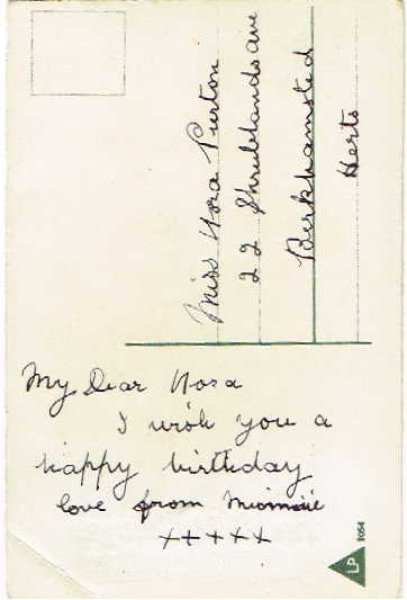 Miss Nora Purton
22 Shrublands ave
Berkhamsted
Herts
My Dear Nora
I wish you a
happy birthday
love from
+++++
LP